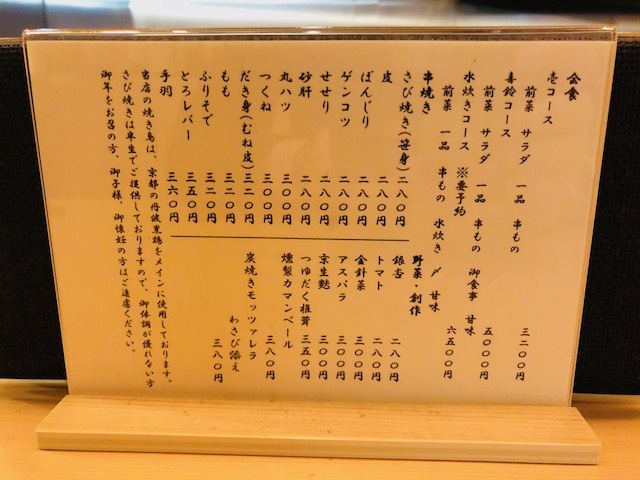 会食
壱コース
前菜 サラダ 一品 串もの 三二〇〇円
喜鈴コース
前菜 サラダ 一品 串もの 御食事 甘味 五〇〇〇円
水炊きコース ※要予約
前菜 一品 串もの 水炊き 〆 甘味 六五〇〇円
串焼き
さび焼き(笹身) 二八〇円
皮 二八〇円
ぼんじり 二八〇円
ゲンコツ 二八〇円
せせり 二八〇円
砂肝 二八〇円
丸ハツ 三〇〇円
つくね 三〇〇円
だき身(むね皮) 三二〇円
もも 三二〇円
ふりそで 三二〇円
とろレバー 三五〇円
手羽 三六〇円
野菜・創作
銀杏 二八〇円
トマト 二八〇円
金針菜 三〇〇円
アスパラ 三〇〇円
京生麩 三〇〇円
つゆだく椎茸 三五〇円
燻製カマンベール 三八〇円
炭焼きモッツァレラ
わさび添え 三八〇円
当店の焼き鳥は、京都の丹波黒鶏をメインに使用しております。
さび焼きは半生でご提供しておりますので、御体調が優れない方
御年をお召の方、御子様、御懐妊の方はご遠慮ください。